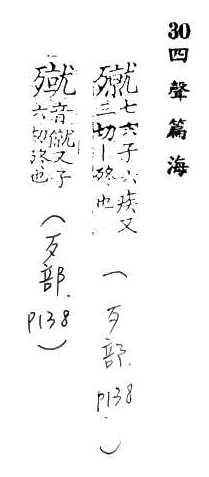 30四聲篇海
殧七六子六疾又
三切｜終也
（歹部.P138.）
殧音僦又子
六切終也
（歹部.P138）